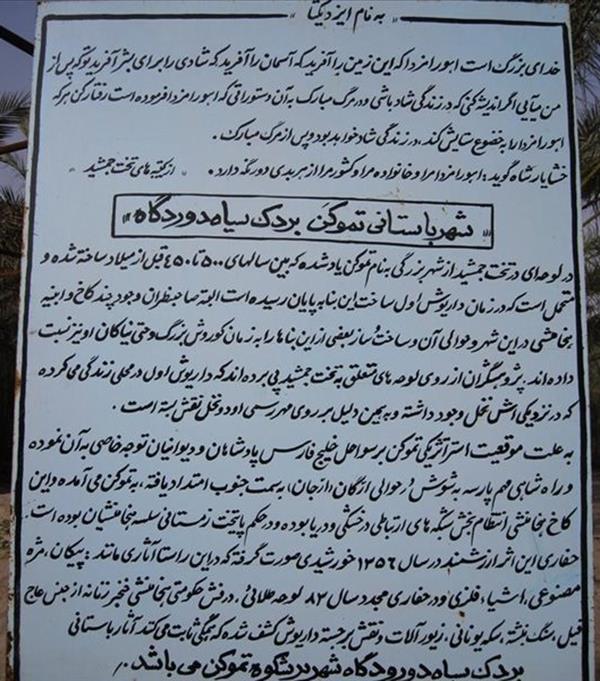 « به نام ایزد یکتا »
خدای بزرگ است اهورامزدا که این زمین را آفرید که آسمان را آفرید که شادی را برای بشر آفرید تو که پس از
من میآیی اگر اندیشه کنی که در زندگی شاد باشی و در مرگ مبارک به آن دستوراتی که اهورامزدا فرموده است رفتار کن هر که
اهورامزدا را به خضوع ستایش کند، در زندگی شاد خواهد بود و پس از مرگ مبارک.
خشایارشاه گوید: اهورامزدا مرا و خانواده مرا و کشور مرا از هر بدی دور نگه دارد. از کتیبه های تخت جمشید
«شهر باستانی تموکن بردک سیاه دورودگاه»
در لوحه‌ای در تخت جمشید از شهر بزرگی به نام تموکن یاد شده که بین سالهای ۵۰۰ تا ۴۵۰ قبل از میلاد ساخته شده و
محتمل است که در زمان داریوش اول ساخت این بنا به پایان رسیده است البته صاحبنظران وجود چند کاخ و ابنیه
هخامنشی در این شهر و حوالی آن و ساخت و ساز بعضی از این بناها را به زمان کوروش بزرگ و حتی نیاکان او نیز نسبت
داده‌اند. پژوهشگران از روی لوحه های متعلق به تخت جمشید پی برده‌اند که داریوش اول در محلی زندگی می کرده
که در نزدیکی اش نخل وجود داشته و به همین دلیل بر روی مهر رسمی او دو نخل نقش بسته است.
به علت موقعیت استراتژیکی تموکن بر سواحل خلیج فارس پادشاهان و دیوانیان توجه خاصی به آن نموده
و راه شاهی مهم پارسه به شوش از حوالی ارگان (ارجان) به سمت جنوب امتداد یافته، به تموکن می آمده و این
کاخ هخامنشی انتظام بخش شبکه های ارتباطی در خشکی و دریا بوده و در حکم پایتخت زمستانی سلسله هخامنشیان بوده است.
حفاری این اثر ارزشمند در سال ۱۳۵۶ خورشیدی صورت گرفته که در این راستا آثاری مانند: پیکان، مژه
مصنوعی، اشیاء فلزی و در حفاری مجدد سال ۸۲ لوحه طلائی، درفش حکومتی هخامنشی خنجر زنانه از جنس عاج
فیل، سنگ نبشته، سکه یونانی، زیورآلات و نقش برجسته داریوش کشف شده که همگی ثابت می کند آثار باستانی
بردک سیاه دورودگاه شهر پرشکوه تموکن می باشد.